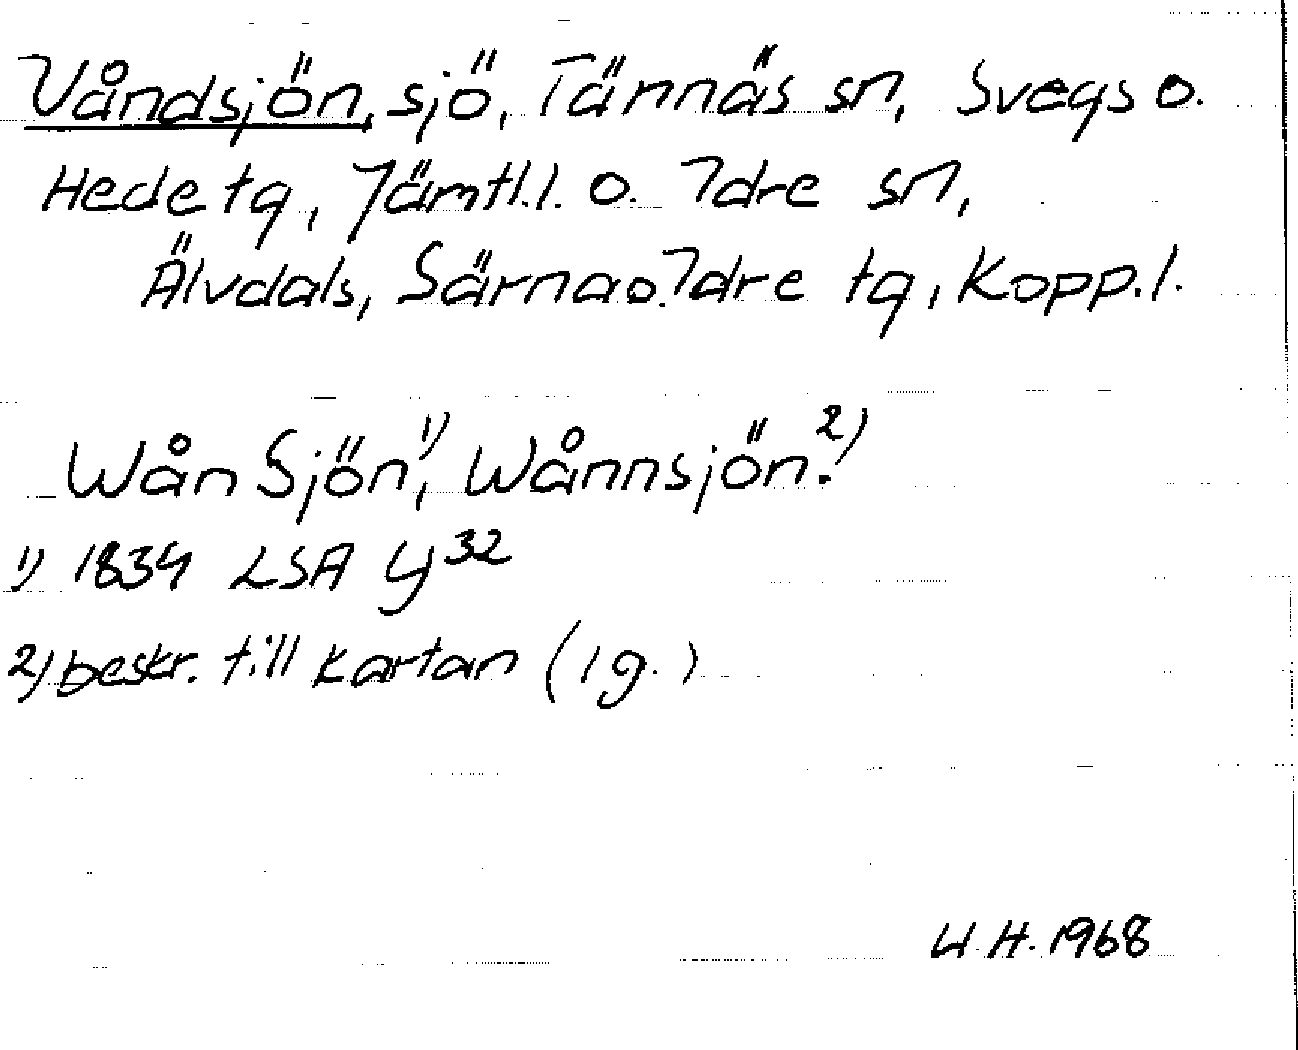 Våndsjön, sjö, Tännäs sn, Svegs o.
Hede tg, Jämtl.l. o. Idre sn,
Älvdals, Särna o. Idre tg, Kopp.l.
Wån Sjön¹⁾, Wånnsjön.²⁾
1) 1834 LSA Y³²
2) beskr. till kartan (1 g.)
U.H. 1968